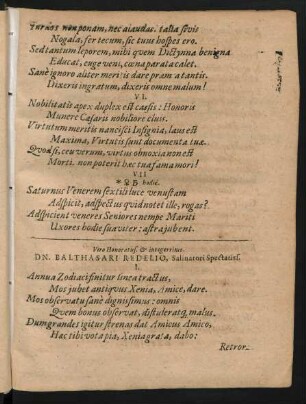 Turdos non ponam, nec aiaudas: talia sivis
Nogala, fer tecum, sic tuus hospes ero.
Sed tantum leporem, mibi quem Dictynna benigna
Educat, euge veni, cœna parata calet.
Sanè ignoro aliter meritis dare præmia tantis.
Dixeris ingratum, dixeris omne malum!
VI.
Nobilitatis apex duplex est cæsis: Honoris
Munere Cæsarii nobiliore cluis.
Virtutum meritis nancisci Insignia, laus est
Maxima, Virtutis sunt documenta tuæ.
Quod si, ceu verum, virtus obnoxia non est
Morti. non poterit hæc tua fama mori!
VII
* ♀ ♄ hodiè.
Saturnus Venerem sextili luce venustam
Adspicit, adspectus quid notet ille, rogas?
Adspicient veneres Seniores nempe Mariti
Uxores hodie suaviter: astra jubent.
Viro Honoratiss. & integerrimo.
DN. BALTHASARI REDELIO, Salinatori Spectatiss.
I.
Annua Zodiaci finitur linea tractus,
Mos jubet antiqvus Xenia, Amice, dare.
Mos observatu sanè dignissimus: omnis
Quem bonus observat, distulerátq; malus.
Dum grandes igitur strenas dat Amicus Amico,
Hac tibi vota pia, Xenia grata, dabo:
Retror-